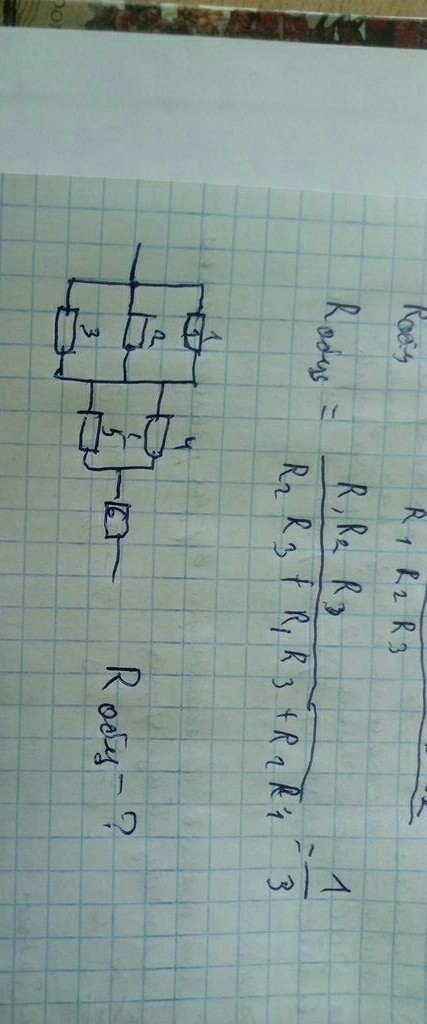 Rобщ
R1 R2 R3
Rобщ = R1R2 R3 / R2 R3 + R1 R3 + R2 R1 = 1/3
1
2
3
4
5
6
Rобщ - ?